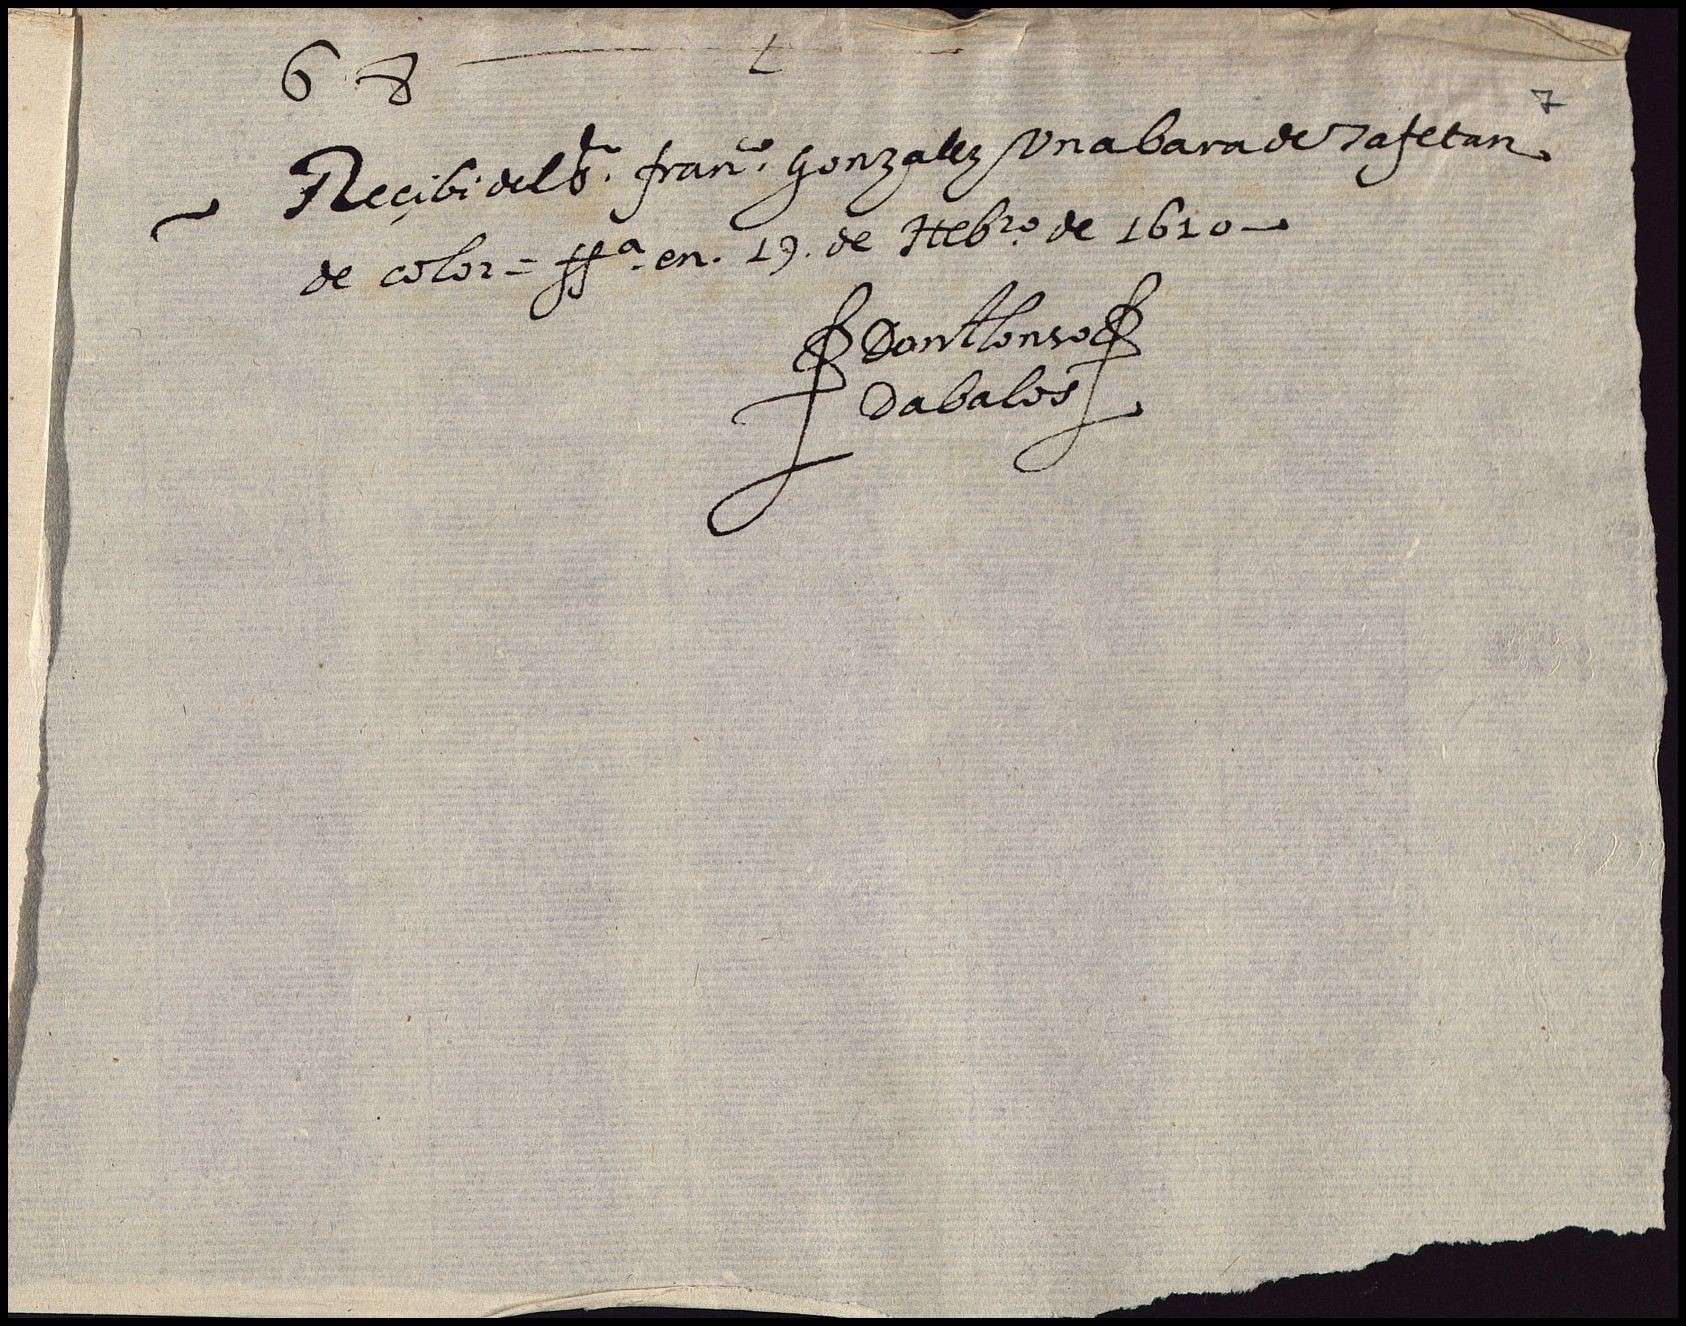 6 8 7
7
Reçibi del Sr. franco. Gonzalez Una bara de Tafetan
de color = ffa. en. 19. de Hebro. de 1610
Don Alonso
Dabalos